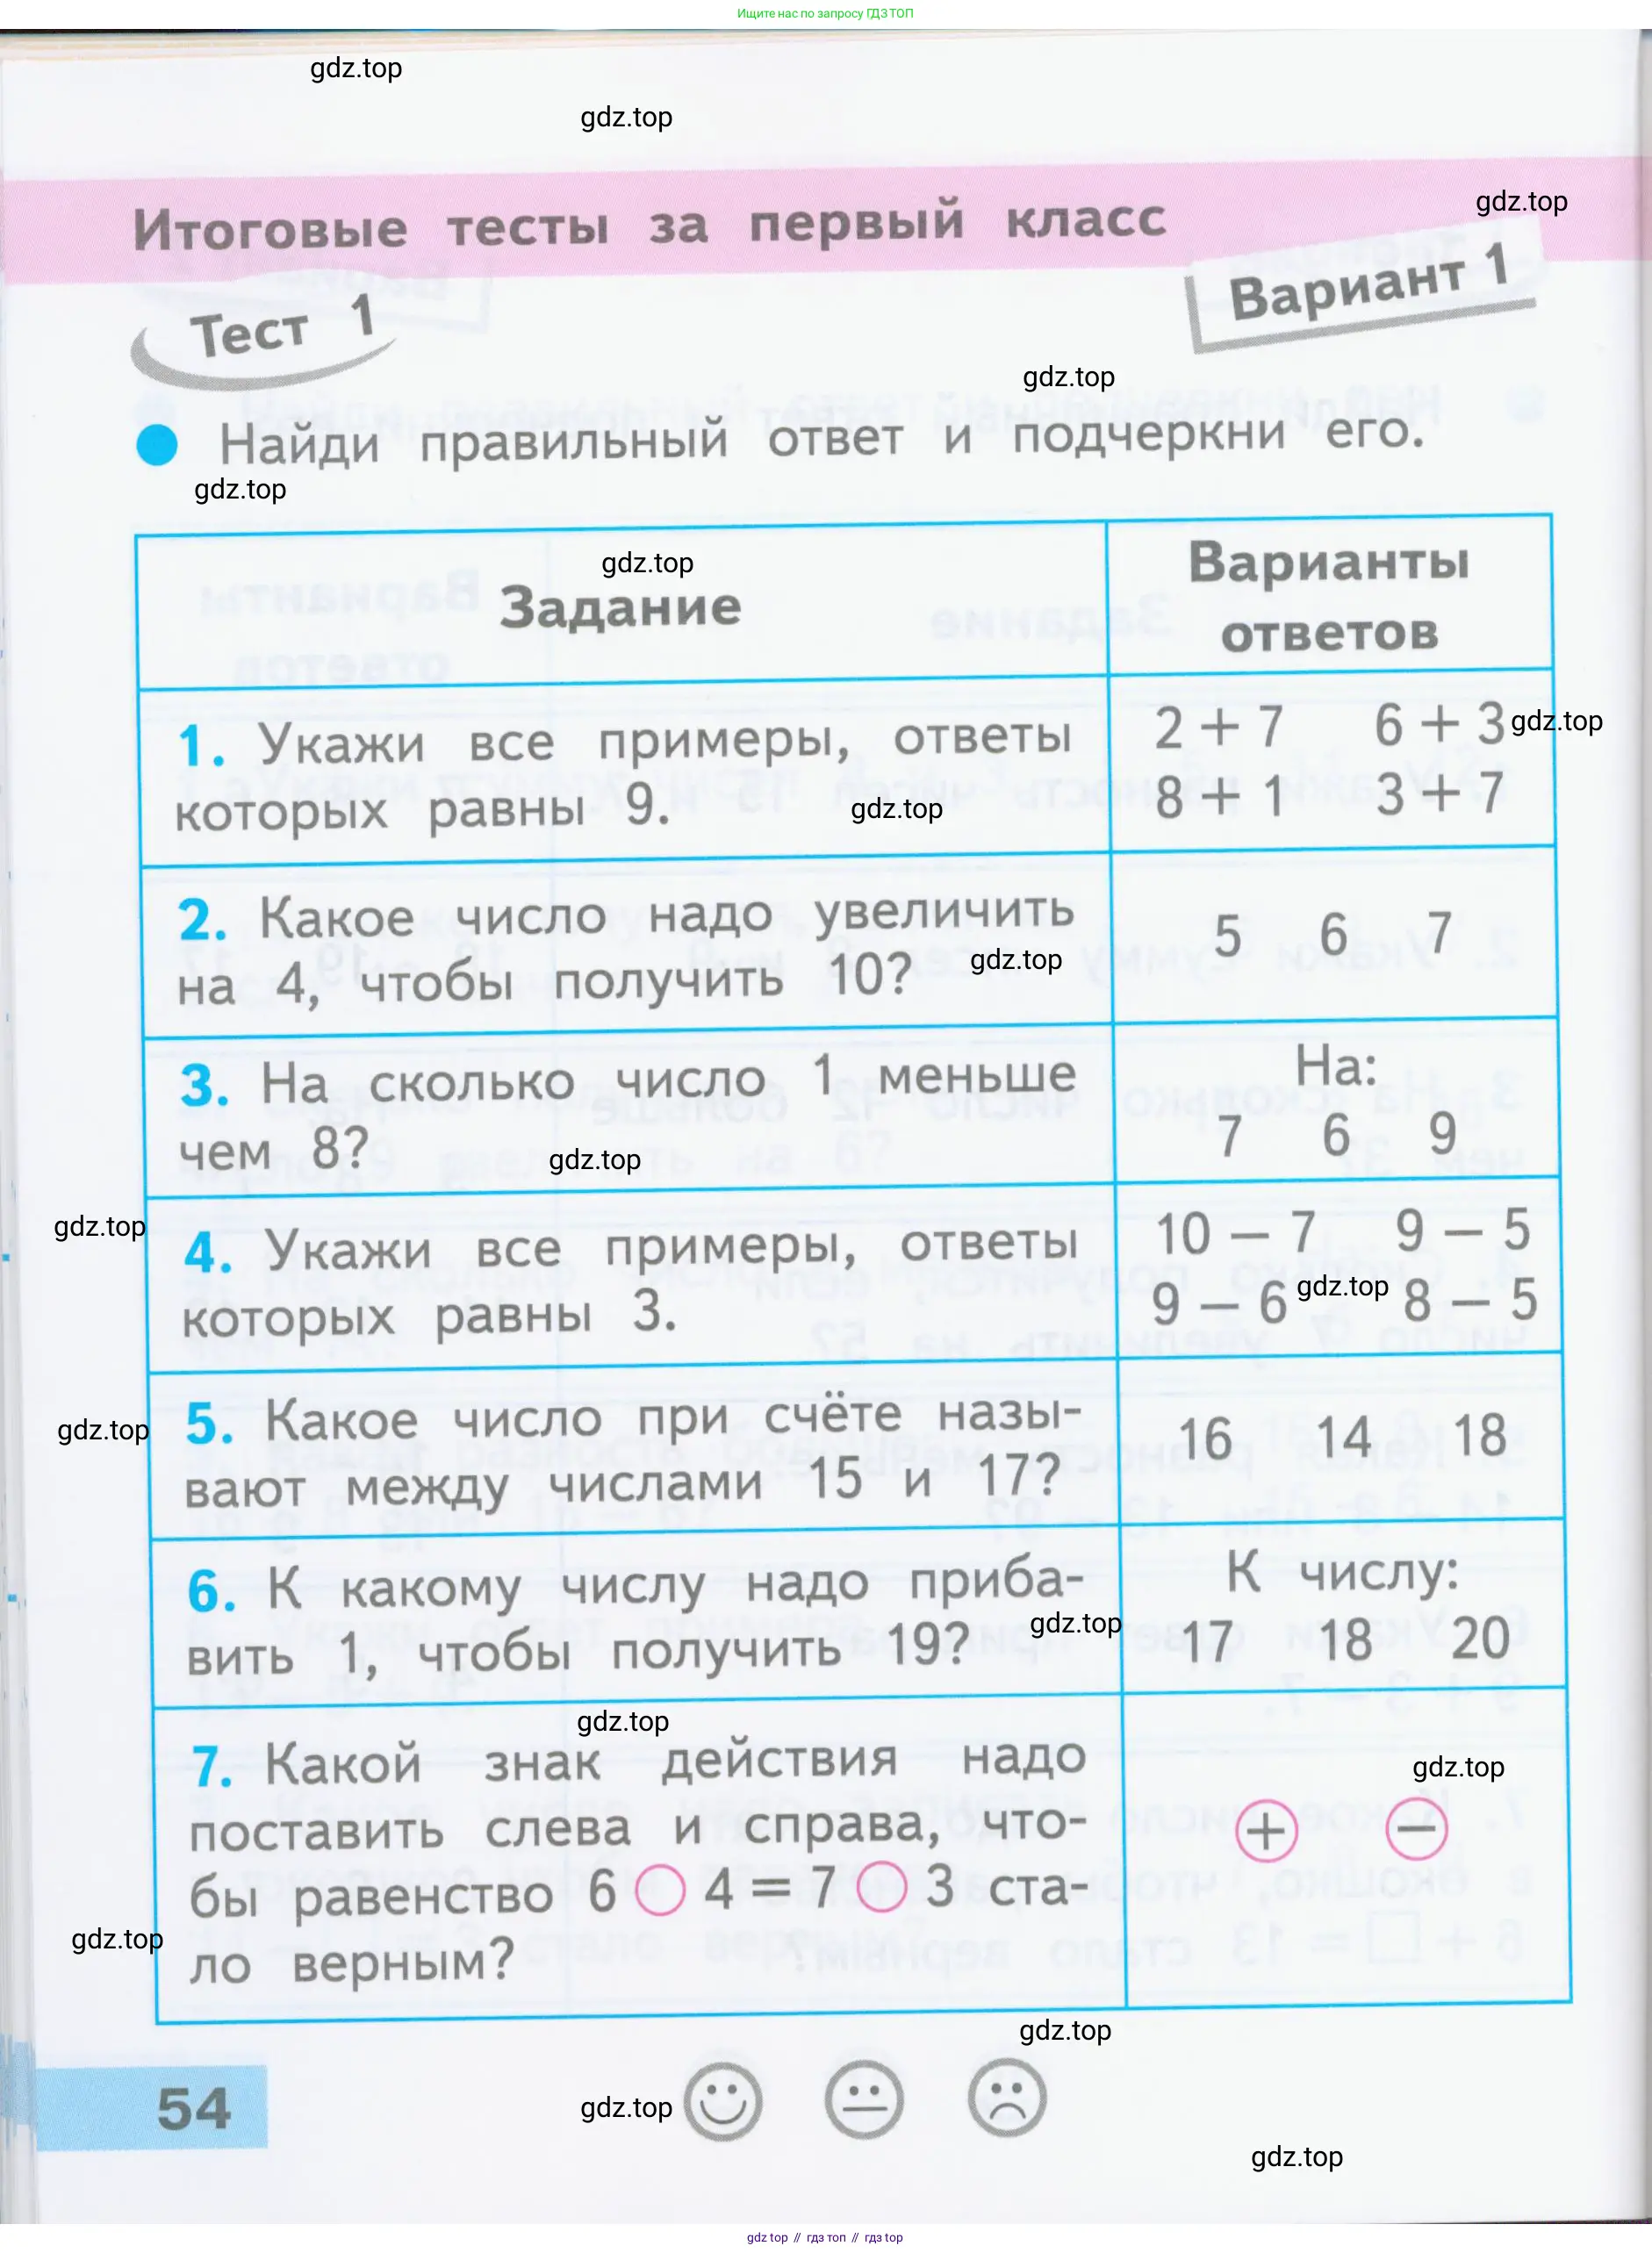 Ищите нас по запросу ГДЗ ТОП
gdz.top
gdz.top
gdz.top
Итоговые тесты за первый класс
Вариант 1
Тест 1
gdz.top
Найди правильный ответ и подчеркни его.
gdz.top
gdz.top
Задание
Варианты
ответов
1. Укажи все примеры, ответы
которых равны 9.
gdz.top
2 + 7 6 + 3
gdz.top
8 + 1 3 + 7
2. Какое число надо увеличить
на 4, чтобы получить 10?
gdz.top
5 6 7
3. На сколько число 1 меньше
чем 8?
gdz.top
На:
7 6 9
gdz.top
4. Укажи все примеры, ответы
которых равны 3.
10 − 7 9 − 5
gdz.top
9 − 6 8 − 5
gdz.top
5. Какое число при счёте назы-
вают между числами 15 и 17?
16 14 18
6. К какому числу надо приба-
вить 1, чтобы получить 19?
gdz.top
К числу:
17 18 20
gdz.top
7. Какой знак действия надо
поставить слева и справа, что-
бы равенство 6 ◯ 4 = 7 ◯ 3 ста-
ло верным?
gdz.top
+ −
gdz.top
gdz.top
54
gdz.top
gdz.top
gdz top // гдз топ // гдз top